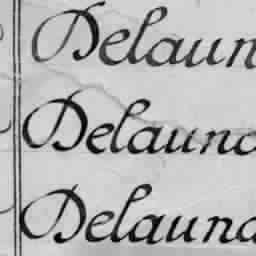 Delaun
Delauna
Delauna